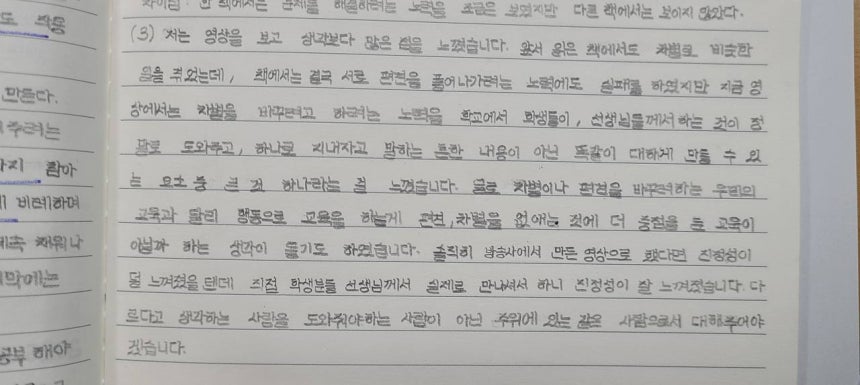 도 작동
만든다.
주려는
까지 참아
비례하며
계속 채워나
막에는
공부 해야
차이점 : 한 책에서는 문제를 해결하려는 노력을 조금은 보였지만 다른 책에서는 보이지 않았다.
(3) 저는 영상을 보고 생각보다 많은 점을 느꼈습니다. 앞서 읽은 책에서도 차별로 비슷한
일을 겪었는데, 책에서는 결국 서로 편견을 풀어나가려는 노력에도 실패를 하였지만 지금 영
상에서는 차별을 바꾸려고 하려는 노력을 학교에서 학생들이, 선생님들께서 하는 것이 정
말로 도와주고, 하나로 지내자고 말하는 흔한 내용이 아닌 똑같이 대하게 만들 수 있
는 요소 중 큰 것 하나라는 걸 느꼈습니다. 글로 차별이나 편견을 바꾸려하는 우리의
교육과 달리 행동으로 교육을 하는게 편견, 차별을 없애는 것에 더 중점을 둔 교육이
아닐까 하는 생각이 들기도 하였습니다. 솔직히 방송사에서 만든 영상으로 했다면 진정성이
덜 느껴졌을 텐데 직접 학생분들 선생님께서 실제로 만나셔서 하니 진정성이 잘 느껴졌습니다. 다
르다고 생각하는 사람을 도와줘야하는 사람이 아닌 주위에 있는 같은 사람으로서 대해주어야
겠습니다.